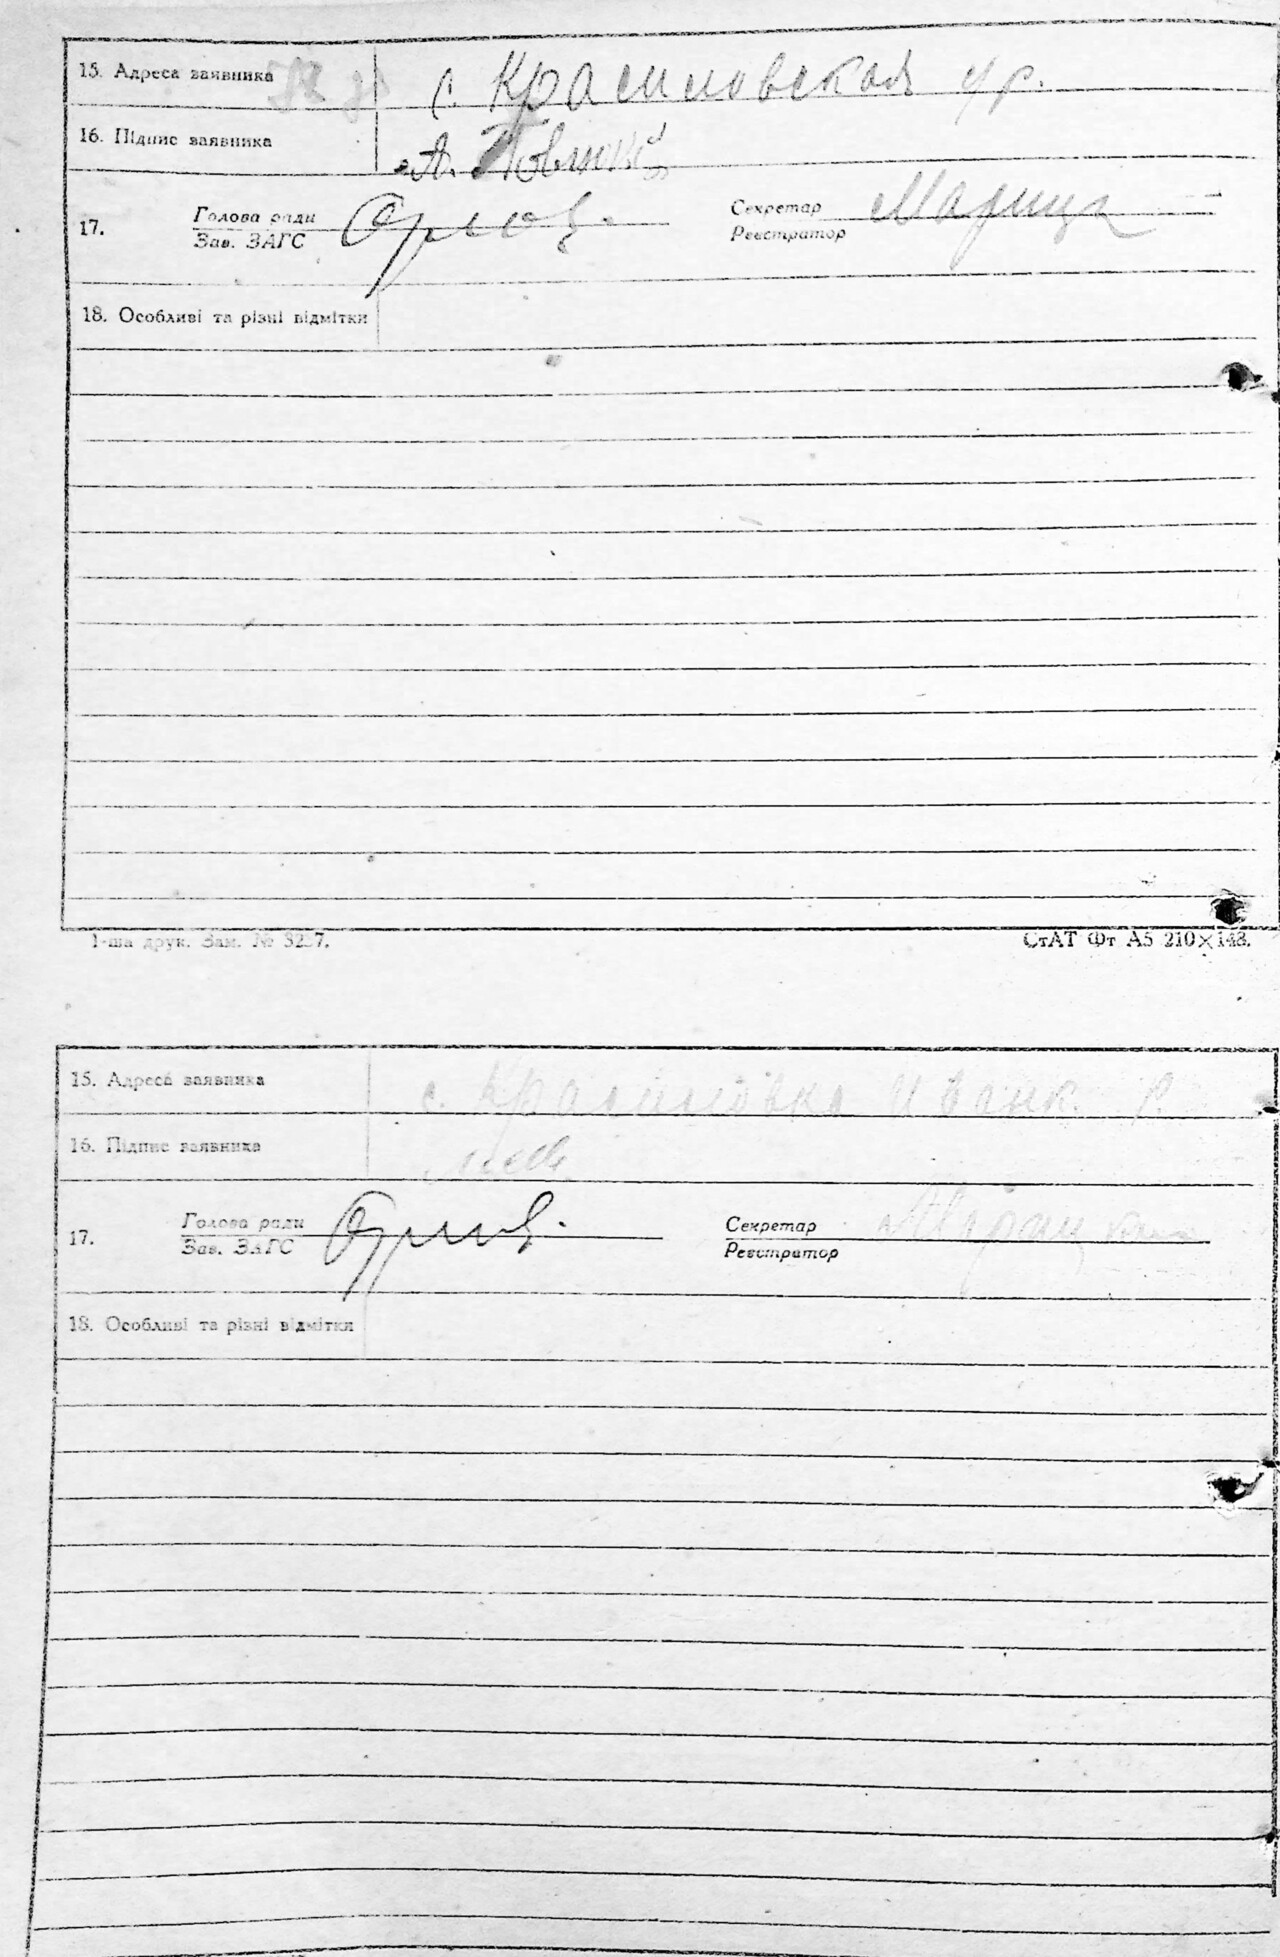 15. Адреса заявника с. Красиловская
16. Підпис заявника А.
17. Голова ради Зав. ЗАГС Орлов. Секретар Реєстратор
18. Особливі та різні відмітки
1-ша друк. Зам. № СтАТ Фт А5 210×148.
15. Адреса заявника с. Красиловка Иванк. р.
16. Підпис заявника
17. Голова ради Зав. ЗАГС Орлов. Секретар Реєстратор
18. Особливі та різні відмітки